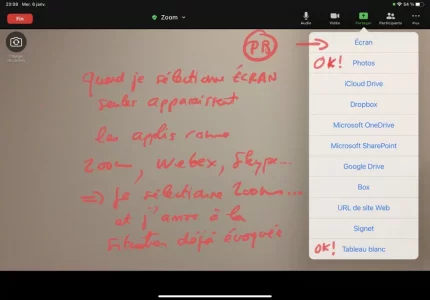 23:08 Mer. 6 janv.
54 %
Fin
Zoom
Audio
Vidéo
Partager
Participants
Plus
PR
Écran
OK! Photos
iCloud Drive
Dropbox
Microsoft OneDrive
Microsoft SharePoint
Google Drive
Box
URL de site Web
Signet
OK! Tableau blanc
Quand je sélectionne ÉCRAN
seules apparaissent
les applis comme
Zoom, Webex, Skype...
=> Je sélectionne Zoom...
et j'arrive à la
situation déjà évoquée